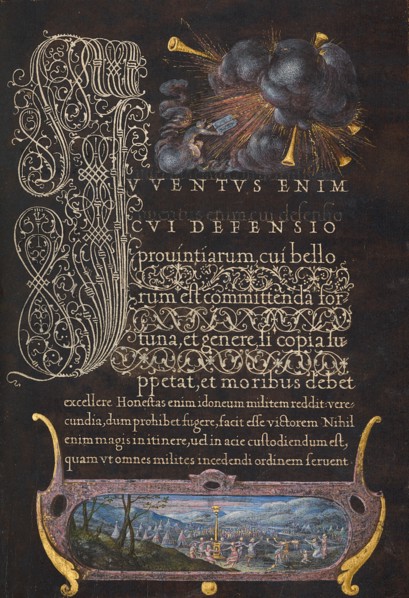 IVVENTVS ENIM
CVI DEFENSIO
prouintiarum, cui bello
rum est committenda for
tuna, et genere, si copia su
ppetat, et moribus debet
excellere Honestas enim idoneum militem reddit: vere
cundia, dum prohibet fugere, facit esse victorem Nihil
enim magis in itinere, uel in acie custodiendum est,
quam vt omnes milites incedendi ordinem seruent